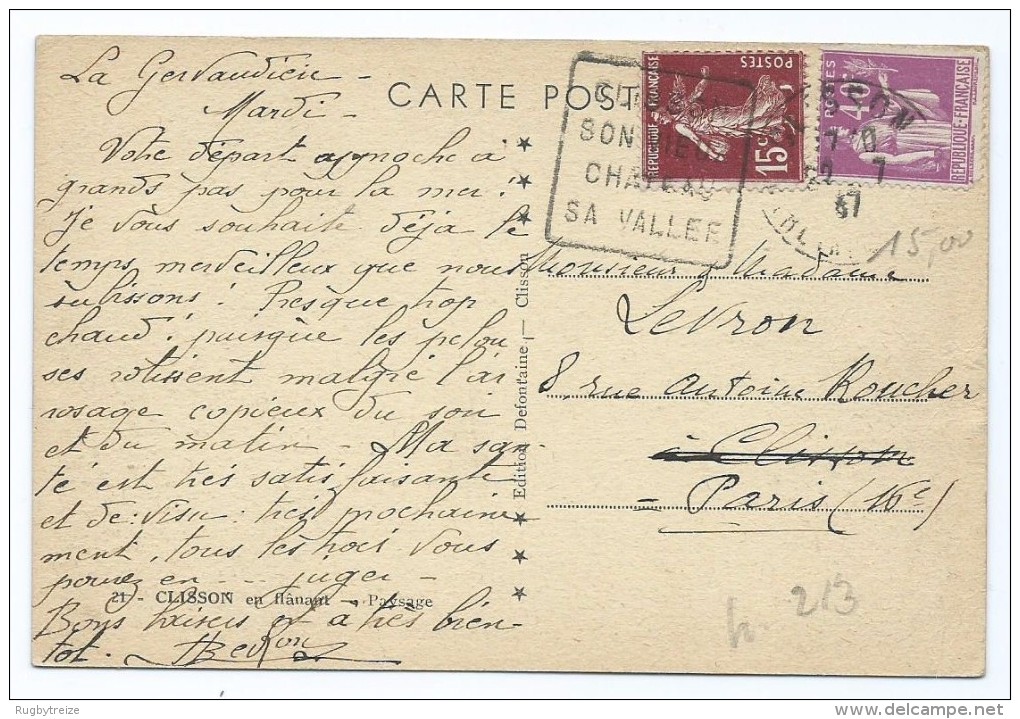 La Gervaudière -
Mardi -
Votre départ approche à
grands pas pour la mer !
Je vous souhaite déjà le
temps merveilleux que nous
subissons ! Presque trop
chaud ! puisque les pelou
ses rôtissent malgré l'ar
rosage copieux du soir
et du matin - Ma san-
té est très satisfaisante
et de visu : très prochaine
ment, tous les trois vous
pourrez en ... juger -
Bons baisers et à très bien-
tôt.
21 - CLISSON en flânant - Paysage
CARTE POST
Edition Defontaine — Clisson
SON VIEUX
CHATEAU
SA VALLEE
REPUBLIQUE FRANÇAISE
POSTES
15c
REPUBLIQUE-FRANÇAISE
15,00
Monsieur & Madame
Levron
8, rue Antoine Roucher
à Clisson
= Paris (16e)
213
Rugbytreize
delcampe.net